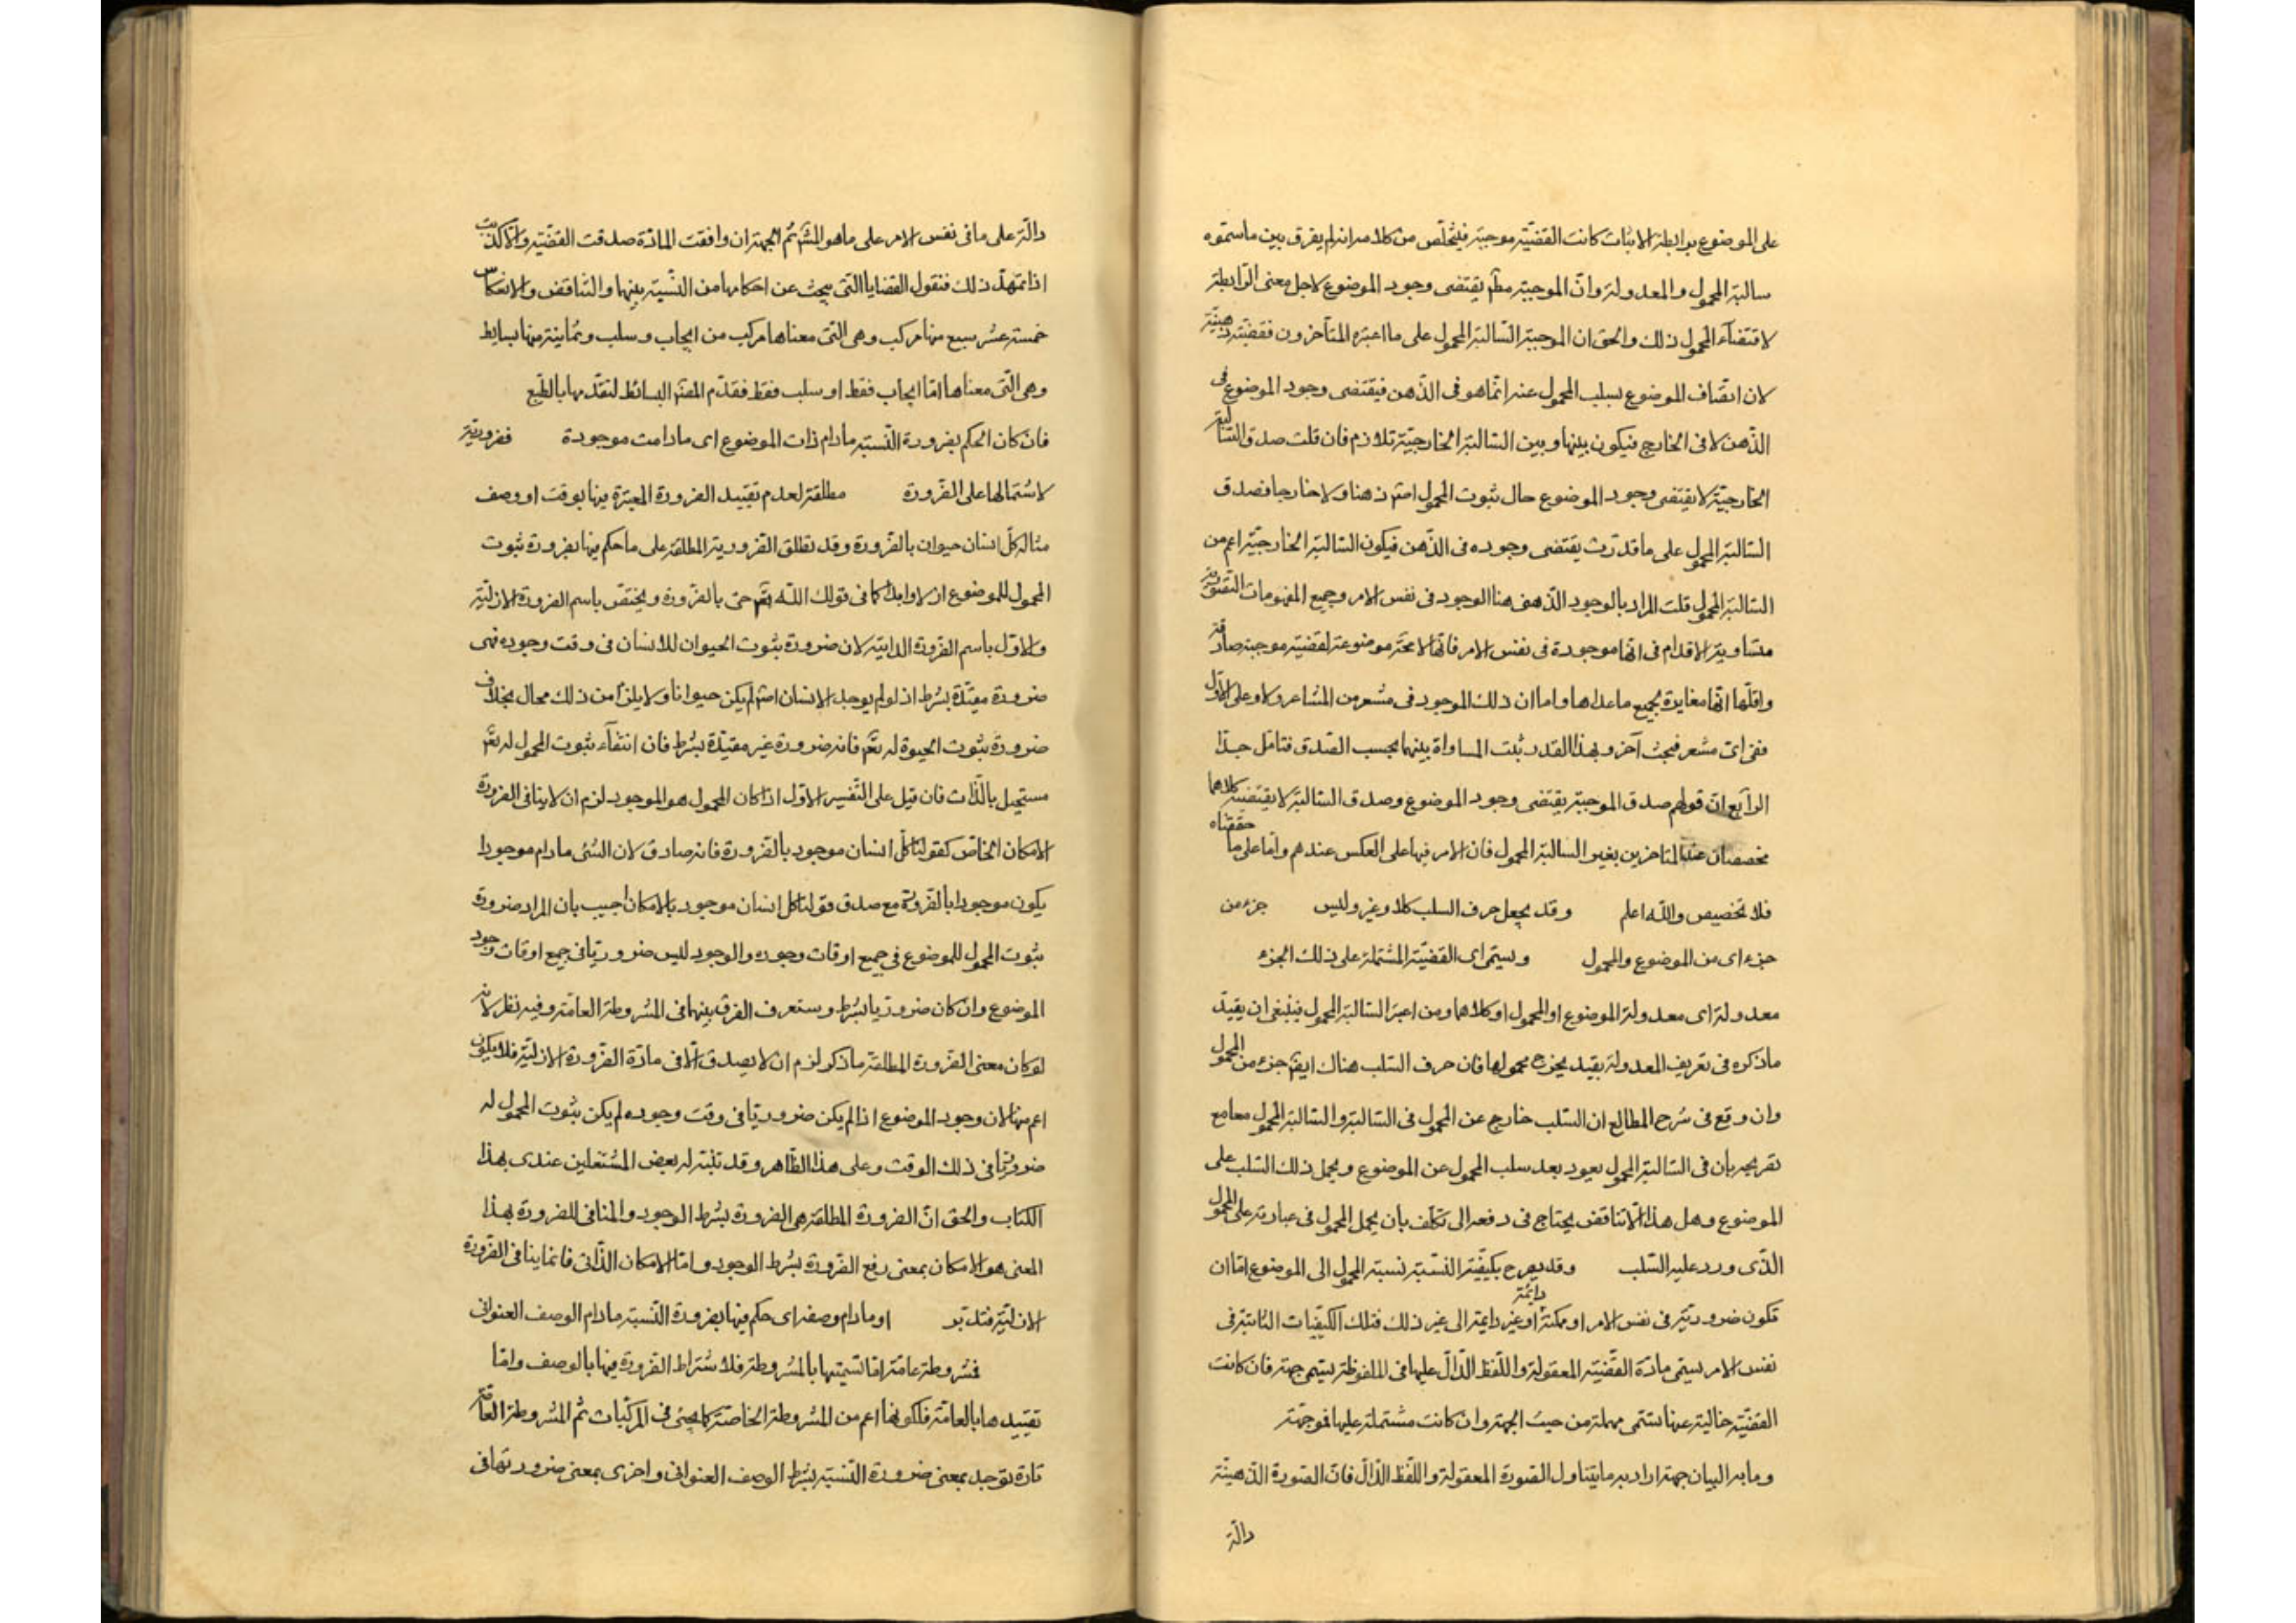 على الموضوع برابطة الاثبات كانت القضيّة موجبة فيتخلّص من كلامه انه لم يفرق بين ما سمّوه
سالبة المحمول والمعدولة وانّ الموجبة مطلقا يقتضى وجود الموضوع لاجل معنى الرّابطة
لاقتضاء المحمول ذلك والحق ان الموجبة السّالبة المحمول على ما اعتبره المتأخرون فقضيّة ذهنيّة
لان اتصاف الموضوع بسلب المحمول عنه انّما هو فى الذّهن فيقتضى وجود الموضوع فى
الذّهن لا فى الخارج فيكون بينها وبين السّالبة الخارجيّة تلازم فان قلت صدق السّالبة
الخارجيّة لا يقتضى وجود الموضوع حال ثبوت المحمول اصلا ذهنا ولا خارجا فصدق
السّالبة المحمول على ما قدّرت يقتضى وجوده فى الذّهن فيكون السّالبة الخارجيّة اعم من
السّالبة المحمول قلت المراد بالوجود الذّهنى هنا الوجود فى نفس الامر وجميع المفهومات التّصوّريّة
متساوية الاقدام فى انّها موجودة فى نفس الامر فانّها لا محة موضوعة لقضيّة موجبة صادقة
واقلّها انّها مغايرة لجميع ما عداها واما ان ذلك الموجود فى مشعر من المشاعر ولا وعلى الاوّل
ففى اىّ مشعر فبحث آخر وبهذا القدر ثبت المساواة بينهما بحسب الصّدق فتامّل جدّا
الرّابع انّ قولهم صدق الموجبة يقتضى وجود الموضوع وصدق السّالبة لا يقتضيه كلاهما
مخصصان عند المتاخرين بغير السالبة المحمول فان الامر فيها على العكس عندهم وامّا على ما حققناه
فلا تخصيص واللّه اعلم وقد يجعل حرف السلب كلا وغير وليس جزء من
جزء اى من الموضوع والمحمول ويسمّى اى القضيّة المشتملة على ذلك الجزء
معدولة اى معدولة الموضوع او المحمول او كلاهما ومن اعتبر السّالبة المحمول فينبغى ان يقيّد
ما ذكره فى تعريف المعدولة بقيد يخرج محمولها فان حرف السّلب هناك ايضا جزء من المحمول
وان وقع فى شرح المطالع ان السّلب خارج عن المحمول فى السّالبة والسّالبة المحمول معا مع
تصريحه بان فى السّالبة المحمول يعود بعد سلب المحمول عن الموضوع ويحمل ذلك السّلب على
الموضوع وهل هذا الّا تناقض يحتاج فى دفعه الى تكلّف بان يحمل المحمول فى عبارته على المحمول
الّذى ورد عليه السّلب وقد يصرح بكيفيّة النّسبة نسبة المحمول الى الموضوع امّا ان
تكون ضروريّة فى نفس الامر او ممكنة او دائمة غير دايمة الى غير ذلك فتلك الكيفيّات الثابتة فى
نفس الامر يسمّى مادّة القضيّة المعقولة واللّفظ الدّالّ عليها فى الملفوظة يسمى جهة فان كانت
القضيّة خالية عنها تسمّى مهملة من حيث الجهة وان كانت مشتملة عليها فموجهة
وما به البيان جهة اراد به ما يتناول الصّورة المعقولة واللّفظ الدّالّ فانّ الصّورة الذّهنيّة
دالّة
دالّة على ما فى نفس الامر على ما هو المش ثم الجهة ان وافقت المادّة صدقت القضيّة والّا كذبت
اذا تمهّد ذلك فنقول القضايا الّتى يبحث عن احكامها من النّسبة بينها والتّناقض والانعكاس
خمسة عشر سبع منها مركب وهى الّتى معناها مركب من ايجاب وسلب وثمانية منها بسايط
وهى الّتى معناها امّا ايجاب فقط او سلب فقط فقدّم المصنّف البسائط لتقدّمها بالطّبع
فان كان الحكم بضرورة النّسبة ما دام ذات الموضوع اى ما دامت موجودة فضروريّة
لاشتمالها على الضّرورة مطلقة لعدم تقييد الضرورة المعتبرة فيها بوقت او وصف
مثاله كلّ انسان حيوان بالضّرورة وقد تطلق الضّروريّة المطلقة على ما حكم فيها بضرورة ثبوت
المحمول للموضوع ازلا وابدا كما فى قولك اللّه تعم حىّ بالضّرورة ويختصّ باسم الضرورة الازليّة
والاوّل باسم الضّرورة الذاتيّة لان ضرورة ثبوت الحيوان للانسان فى وقت وجوده فهى
ضرورة مقيّدة بشرط اذ لو لم يوجد الانسان اصلا لم يكن حيوانا ولا يلزم من ذلك محال بخلاف
ضرورة ثبوت الحيوة له تعم فانه ضرورة غير مقيّدة بشرط فان انتفاء ثبوت المحمول له تعم
مستحيل بالذّات فان قيل على التّفسير الاوّل اذا كان المحمول هو الموجود لزم ان لا ينافى الضرورة
الامكان الخاصّ كقولنا كلّ انسان موجود بالضّرورة فانه صادق لان الشىء ما دام موجودا
يكون موجودا بالضّرورة مع صدق قولنا كلّ انسان موجود بالامكان اجيب بان المراد ضرورة
ثبوت المحمول للموضوع فى جميع اوقات وجوده والوجود ليس ضروريّا فى جميع اوقات وجود
الموضوع وان كان ضروريّا بشرط وستعرف الفرق بينهما فى المشروطة العامّة وفيه نظر لانه
لو كان معنى الضّرورة المطلقة ما ذكر لزم ان لا يصدق الّا فى مادّة الضّرورة الازليّة فلا يكون
اعم منها لان وجود الموضوع اذا لم يكن ضروريّا فى وقت وجوده لم يكن ثبوت المحمول له
ضروريّا فى ذلك الوقت وعلى هذا الظّاهر وقد تنبّه له بعض المشتغلين عندى بهذا
الكتاب والحق انّ الضرورة المطلقة هى الضرورة بشرط الوجود والمنافى للضرورة بهذا
المعنى هو الامكان بمعنى رفع الضرورة بشرط الوجود وامّا الامكان الذّاتى فانما ينافى الضّرورة
الازليّة فتدبّر او ما دام وصفه اى حكم فيها بضرورة النّسبة ما دام الوصف العنوانى
فمشروطة عامّة امّا تسميتها بالمشروطة فلاشتراط الضّرورة فيها بالوصف وامّا
تقييدها بالعامّة فلكونها اعم من المشروطة الخاصّة كما يجئ فى المركّبات ثمّ المشروطة العامّة
تارة تؤخذ بمعنى ضرورة النّسبة بشرط الوصف العنوانى واخرى بمعنى ضرورتها فى